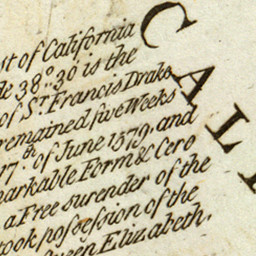 st of California
de 38°. 30' is the
of St. Francis Drake
remained five Weeks
17th. of June 1579. and
markable Form & Cero
a Free surender of the
took possession of the
Queen Elizabeth.
CAL